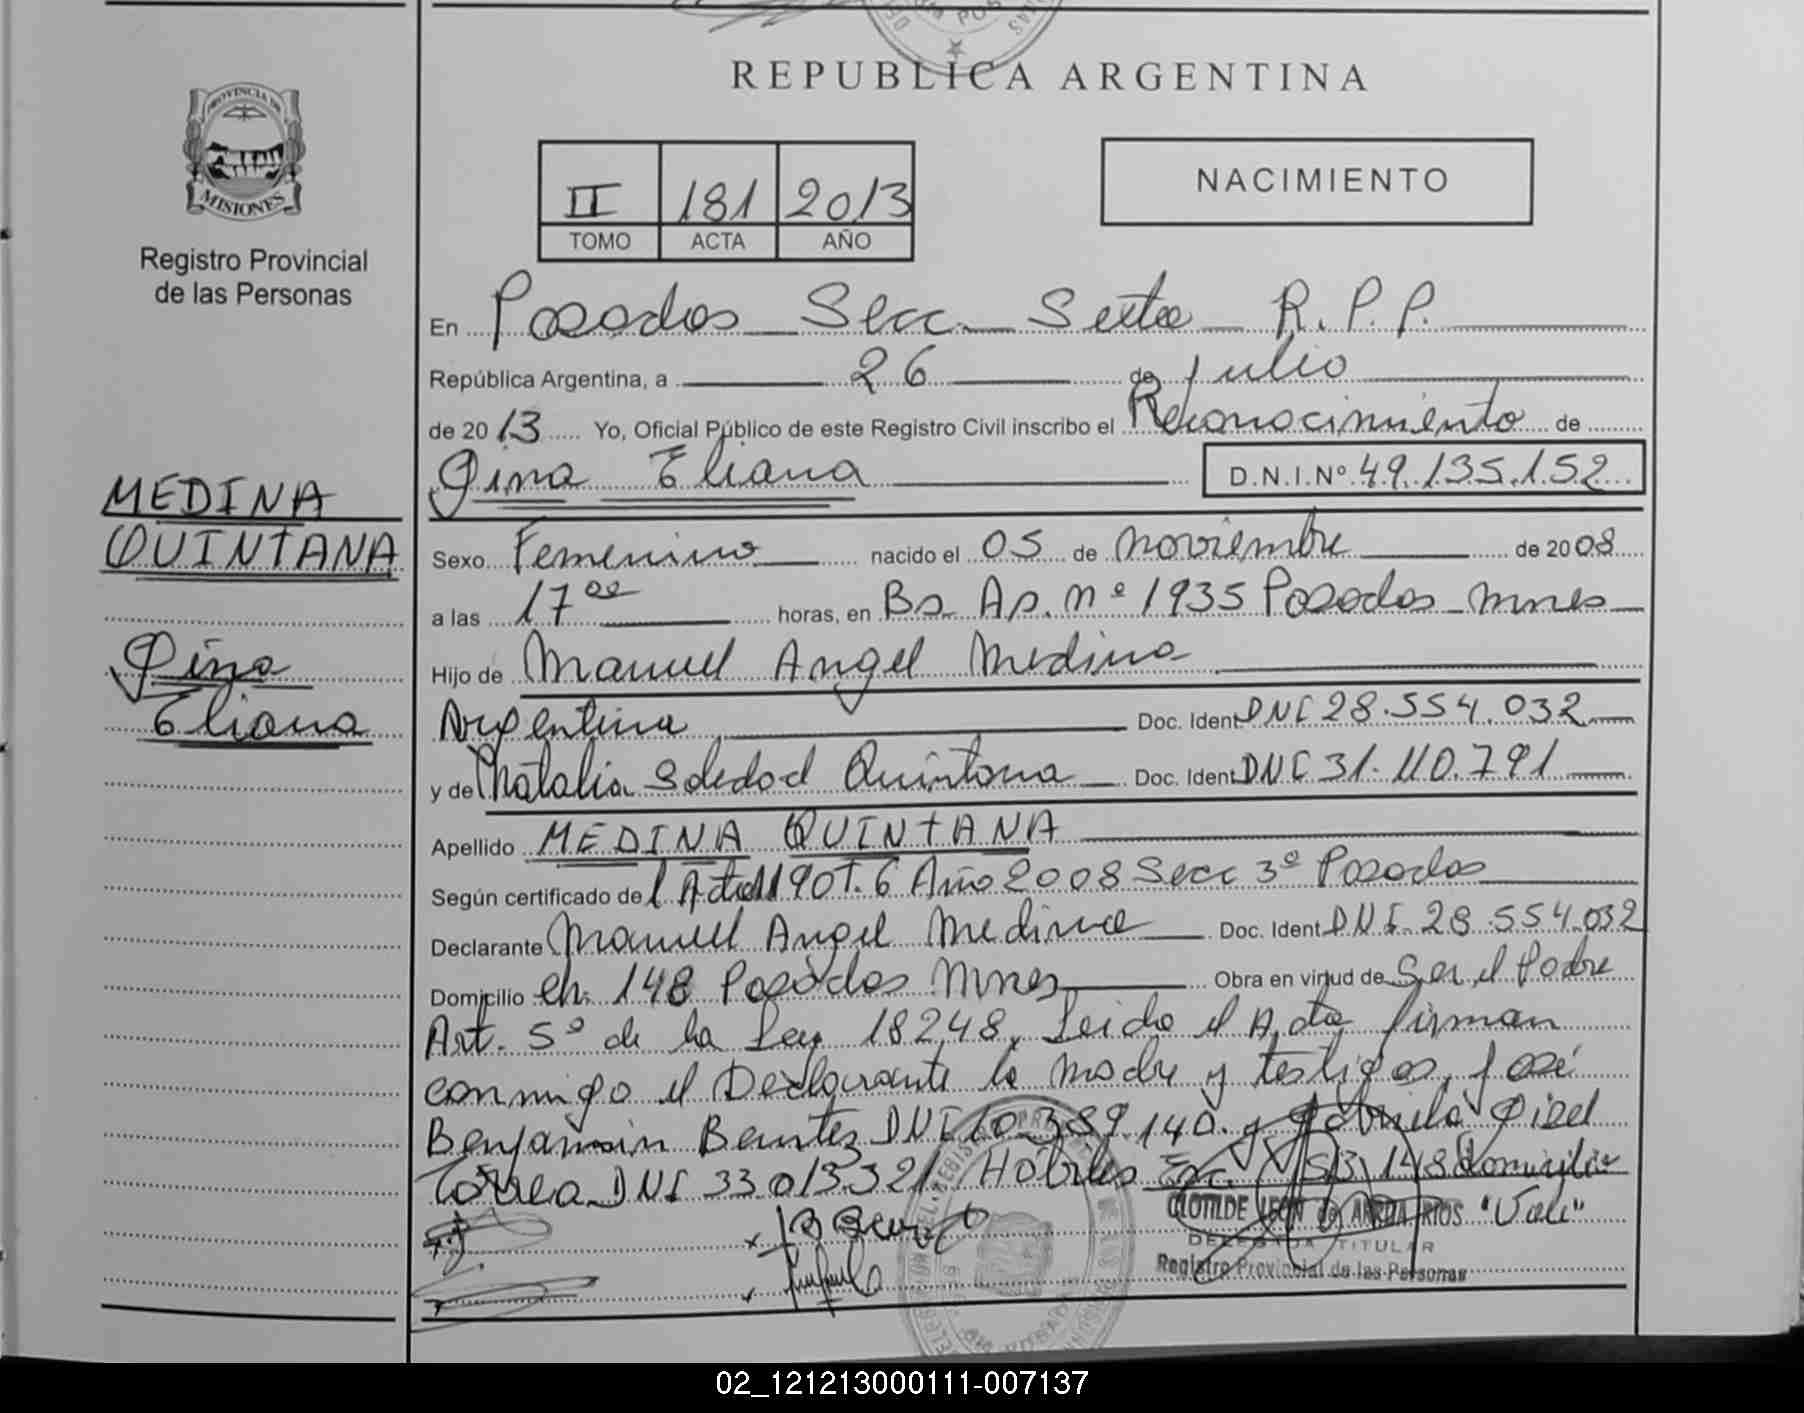 REPUBLICA ARGENTINA
PROVINCIA DE
MISIONES
Registro Provincial
de las Personas
II 181 2013
TOMO ACTA AÑO
NACIMIENTO
En Posadas Secc. Sexta R.P.P.
República Argentina, a 26 de Julio
de 2013 Yo, Oficial Público de este Registro Civil inscribo el Reconocimiento de
Gina Eliana D.N.I.Nº 49.135.152
MEDINA
QUINTANA
Gina
Eliana
Sexo Femenino nacido el 05 de noviembre de 2008
a las 17ºº horas, en Bs As. nº 1935 Posadas Mnes
Hijo de Manuel Angel Medina
Argentina Doc. Ident DNI 28.554.032
y de Natalia Soledad Quintana Doc. Ident DNI 31.110.791
Apellido MEDINA QUINTANA
Según certificado de l Acta 1190 T. 6 Año 2008 Secc 3º Posadas
Declarante Manuel Angel Medina Doc. Ident DNI 28.554.032
Domicilio ch. 148 Posadas Mnes Obra en virtud de Ser el Padre
Art. 5º de la Ley 18248, Leida el Acta firman
conmigo el Declarante la Madre y testigos, José
Benjamin Benitez DNI 10.389.140. y Gabriela Gisel
Torres DNI 33.013.321 Hábiles 148 domicilio
"Vale"
CLOTILDE LEON de
DELEGADA TITULAR
Registro Provincial de las Personas
02_121213000111-007137